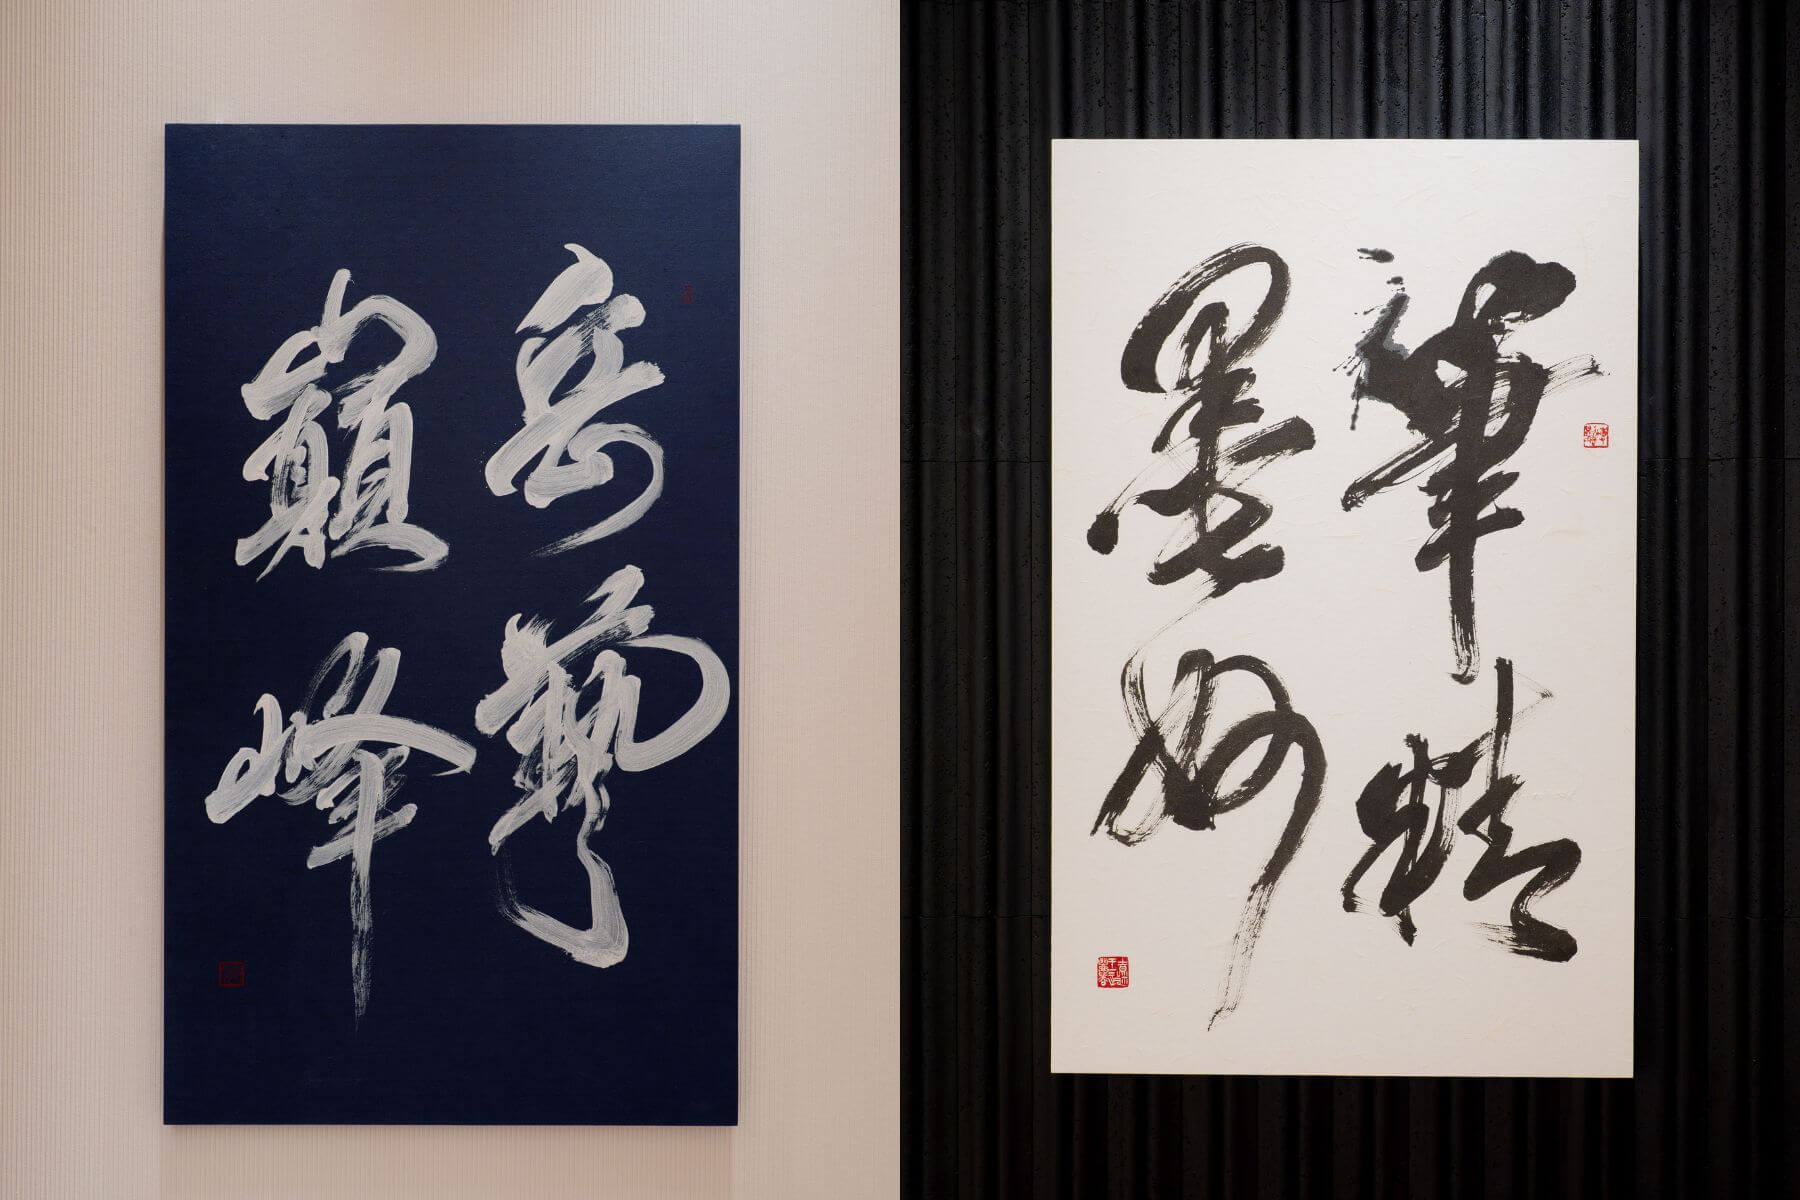 岳藝
巔峰
筆精
墨妙